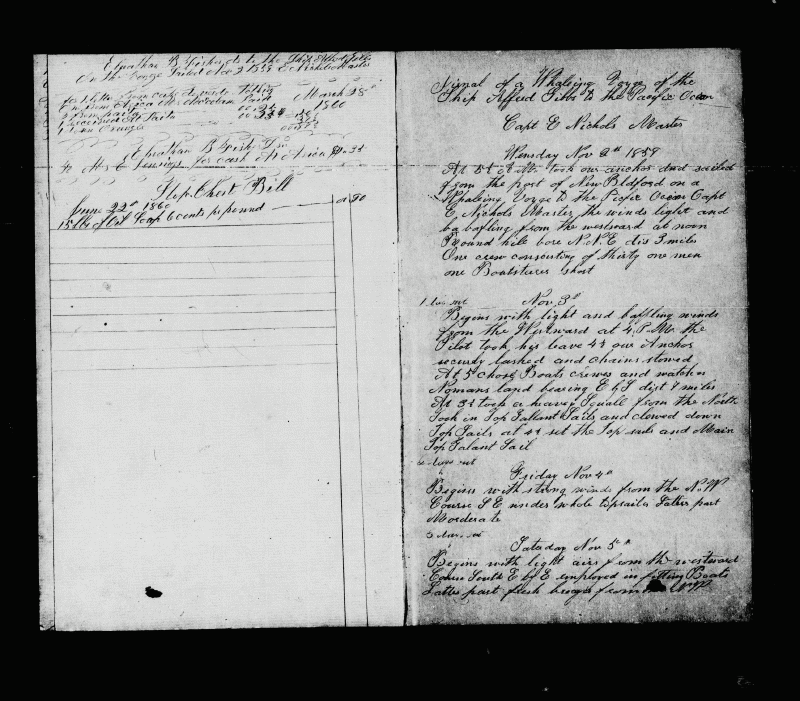 Elnathan B Fisher
On the Voyge Sailed Nov 2 1859 E Nichols Master
March 28th
1860
Elnathan B Fisher Dr
To Mr E Jennings for cash At Arica
Slop Chest Bill
June 22nd 1860
15 lbs of Oil Soap 6 cents pr pound 0 90
Jurnal of a Whaleing Voyge of the
Ship Alfred Gibbs to the Pacific Ocean
Capt E Nichols Master
Wensday Nov 2nd 1859
At 5½ A.M. took our anchor and sailed
from the port of New Bedford on a
Whaleing Voyge to the Pacific Ocean Capt
E Nichols Master the winds light and
bafling from the westward at noon
Round hile bore N.N.E dis 3 miles
Our crew consisting of thirty one men
one Boatsteres short
1 days out Nov 3d
Begins with light and baffling winds
from the Westward at 4 P.M. the
Pilot took his leave our Anchor
securly lashed and chains stowed
At 5 chose Boats crewes and watches
Nomans land bearing E by S dist 7 miles
At took a heavy Squall from the North
Took in Top Gallant Sails and clewed down
Top Sails at set the Top sails and Main
Top Galant Sail
2 days out
Friday Nov 4th
Begins with strong winds from the N.W
Course S E under whole topsailes Latter part
Moderate
3 days out
Sataday Nov 5th
Begins with light aires from the westward
Course South E by E employed in fitting Boats
Latter part fresh breezes from the N W